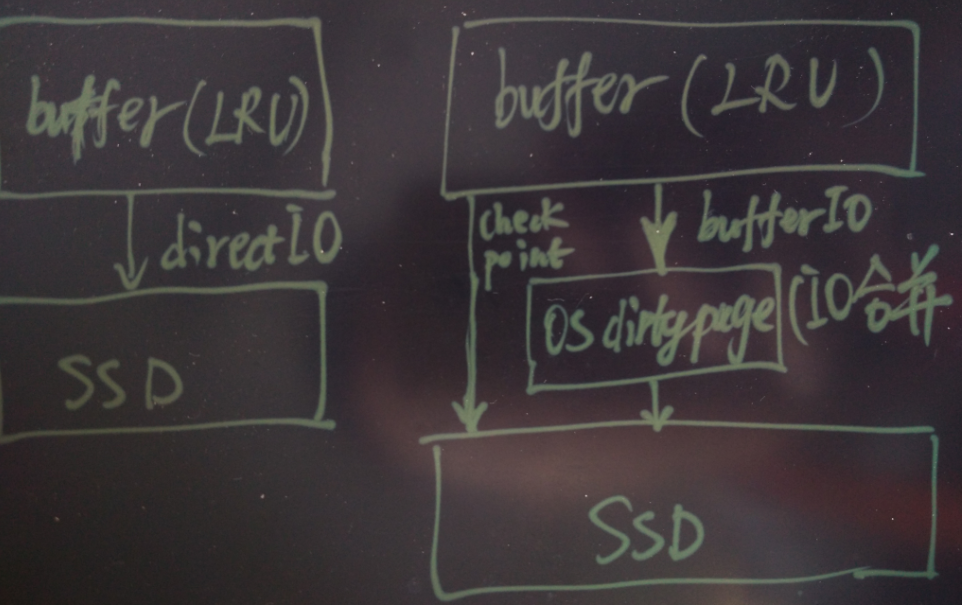 buffer (LRU)
directIO
SSD
buffer (LRU)
check
point
bufferIO
OS dirty page
(IO合并
SSD